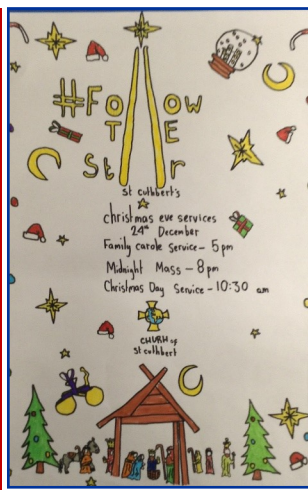 #Follow
THE
StAr
St cuthbert's
christmas eve services
24th December
Family carole Service - 5 pm
Midnight Mass - 8 pm
Christmas Day Service - 10:30 am
CHURH of
St cuthbert